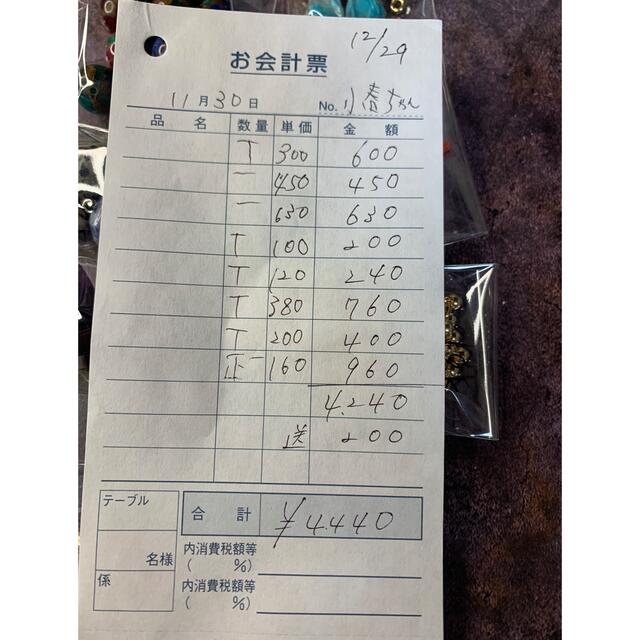 12/29
お会計票
11月30日 No. 小春ちゃん
品名 数量 単価 金額
T 300 600
一 450 450
一 630 630
T 100 200
T 120 240
T 380 760
T 200 400
正一 160 960
4.240
送 200
テーブル
合計 ¥4.440
名様
内消費税額等
( %)
係
内消費税額等
( %)